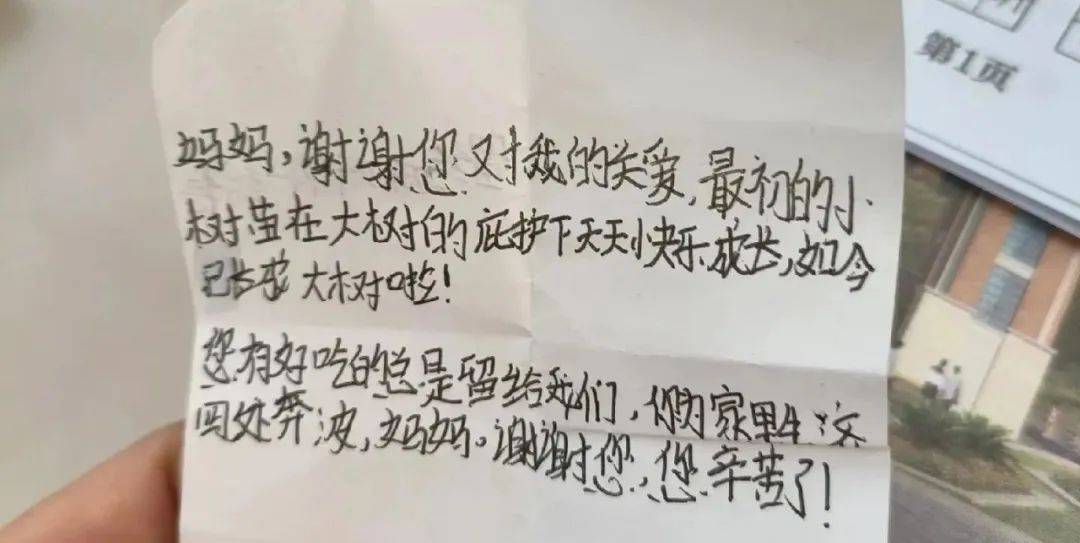 第1页
妈妈,谢谢您对我的关爱,最初的小
树苗在大树的庇护下天天快乐成长,如今
已长成大树啦!
您有好吃的总是留给我们,你为家里生活
四处奔波,妈妈。谢谢您,您辛苦了!